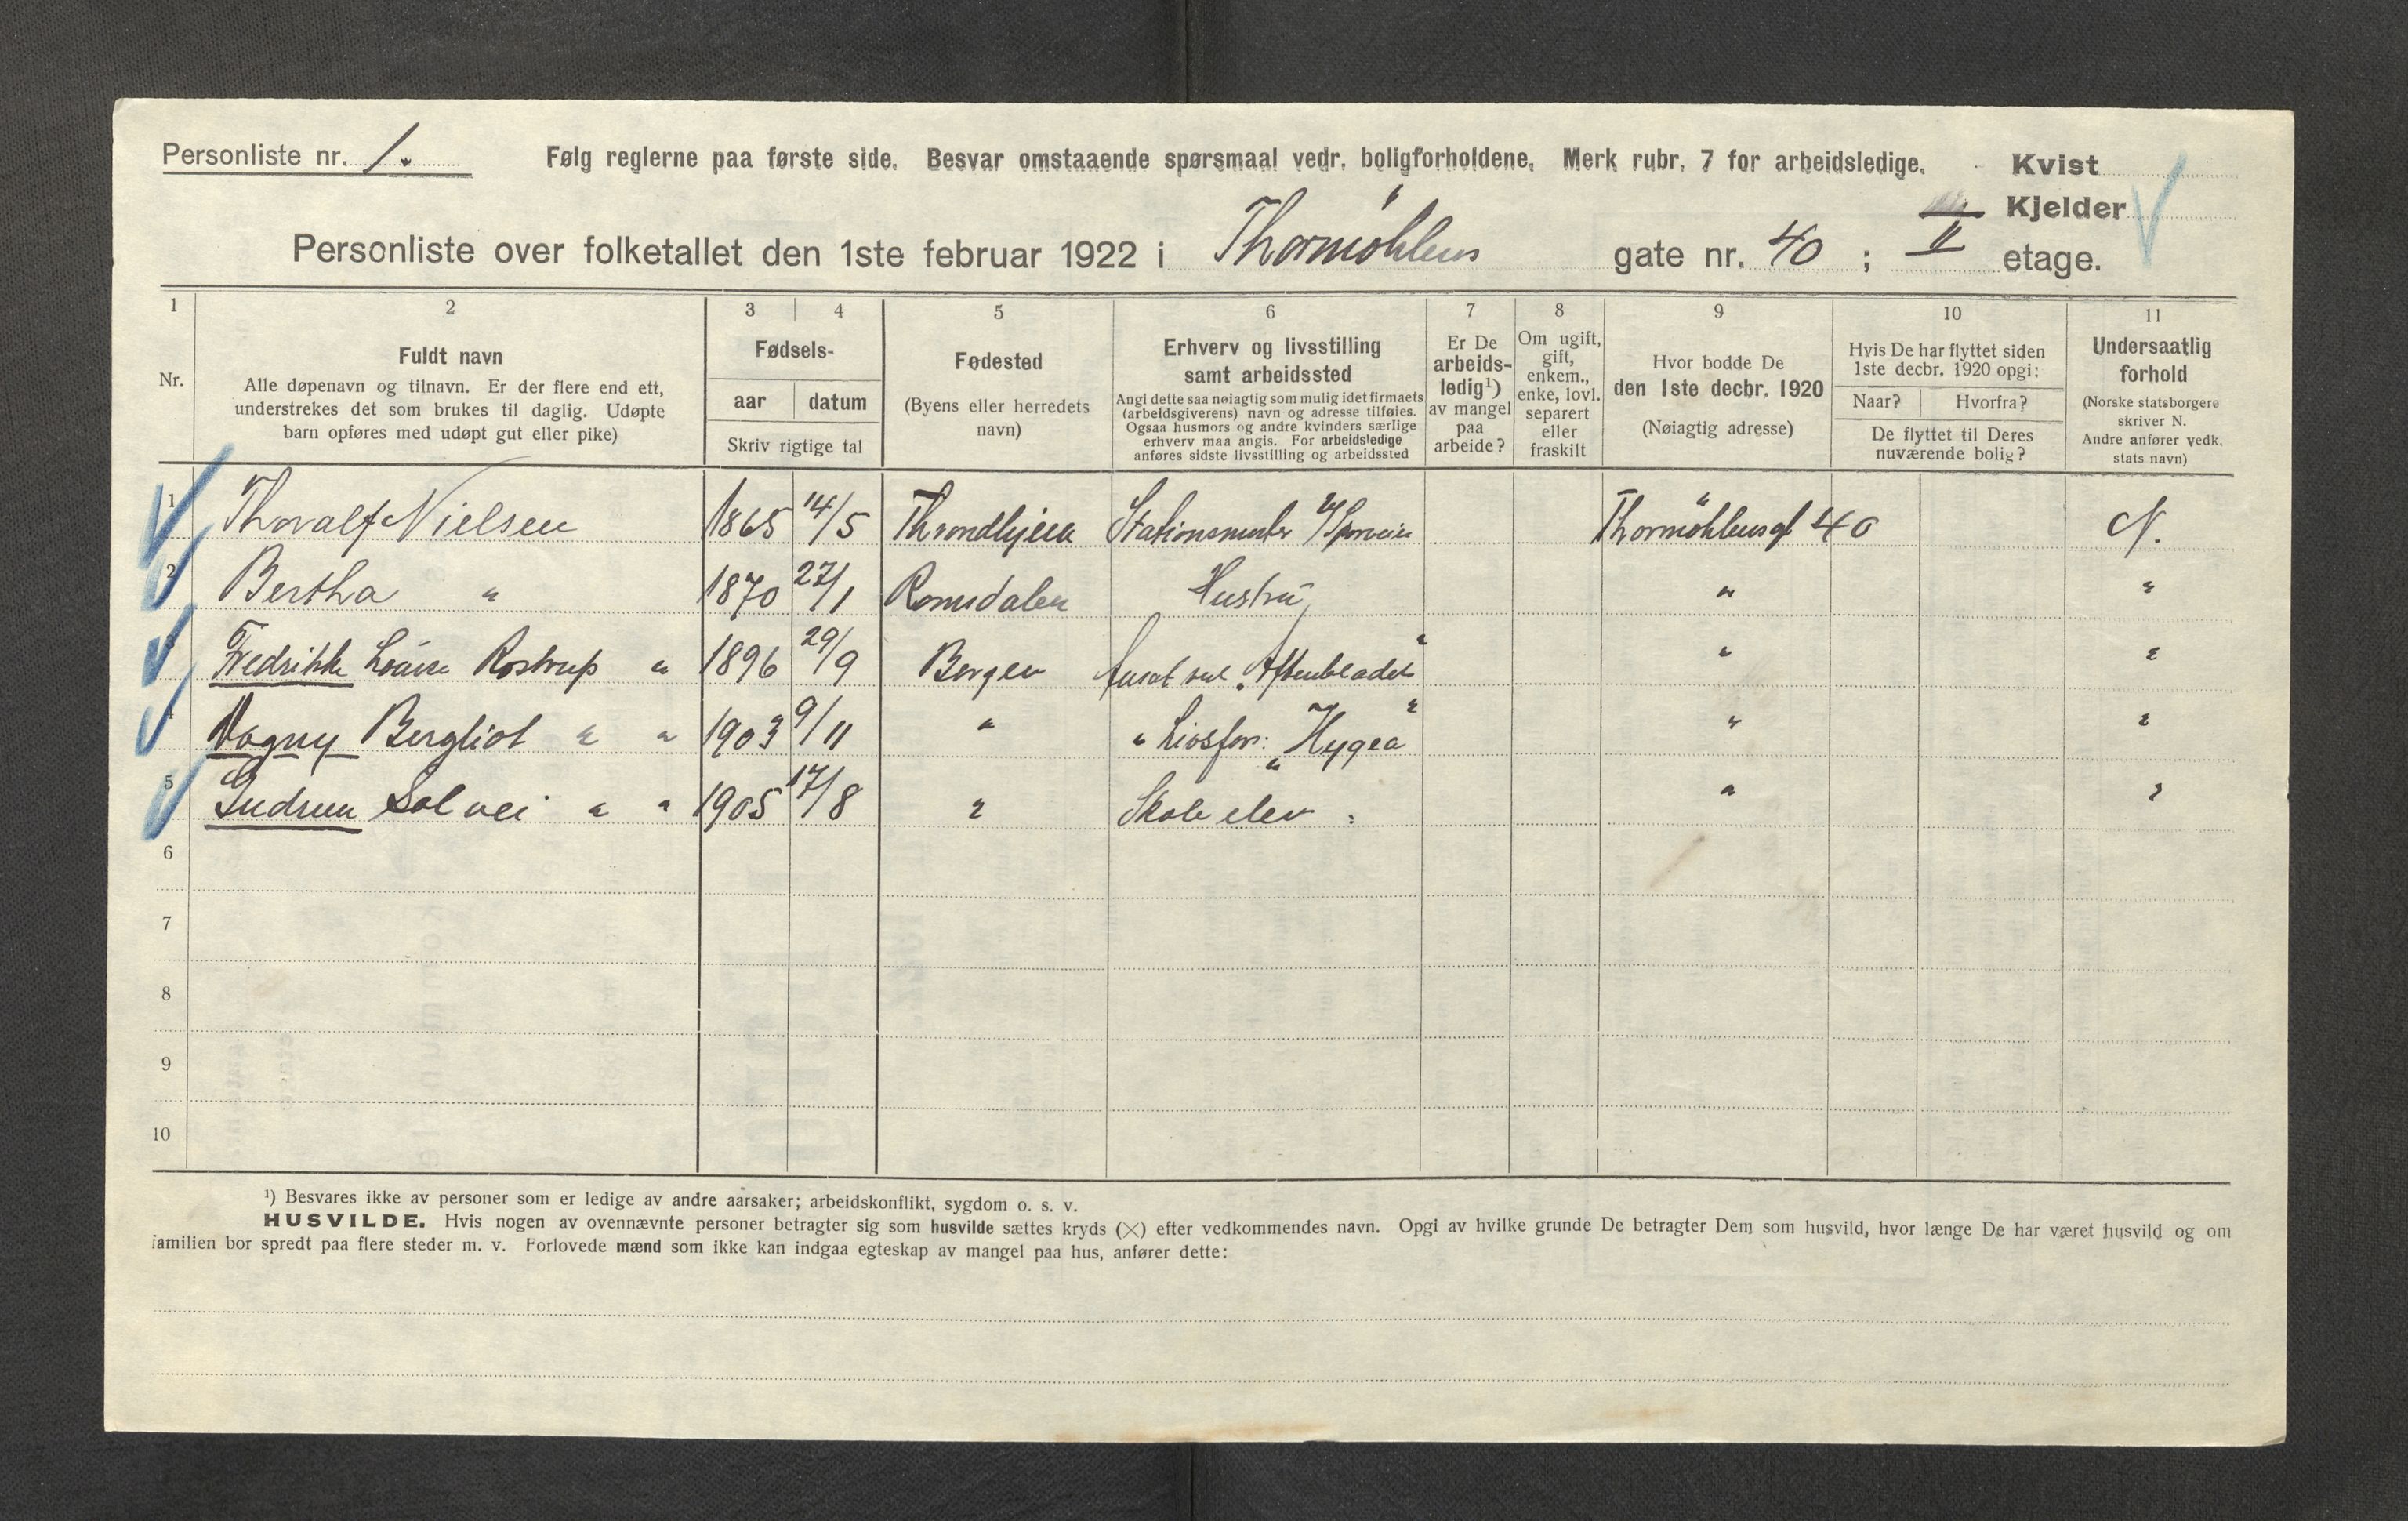 Personliste nr. 1. Følg reglerne paa første side. Besvar omstaaende spørsmaal vedr. boligforholdene. Merk rubr. 7 for arbeidsledige. Kvist
Kjelder
Personliste over folketallet den 1ste februar 1922 i Thormøhlens gate nr. 40 ; II etage.
1 2 3 4 5 6 7 8 9 10 11
Nr.
Fuldt navn
Alle døpenavn og tilnavn. Er der flere end ett,
understrekes det som brukes til daglig. Udøpte
barn opføres med udøpt gut eller pike)
Fødsels-
aar datum
Skriv rigtige tal
Fødested
(Byens eller herredets
navn)
Erhverv og livsstilling
samt arbeidssted
Angi dette saa nøiagtig som mulig idet firmaets
(arbeidsgiverens) navn og adresse tilføies.
Ogsaa husmors og andre kvinders særlige
erhverv maa angis. For arbeidsledige
anføres sidste livsstilling og arbeidssted
Er De
arbeids-
ledig¹)
av mangel
paa
arbeide?
Om ugift,
gift,
enkem.,
enke, lovl.
separert
eller
fraskilt
Hvor bodde De
den 1ste decbr. 1920
(Nøiagtig adresse)
Hvis De har flyttet siden
1ste decbr. 1920 opgi:
Naar? Hvorfra?
De flyttet til Deres
nuværende bolig?
Undersaatlig
forhold
(Norske statsborgere
skriver N.
Andre anfører vedk.
stats navn)
1 Thoralf Nielsen 1865 14/5 Throndhjem Stationsmester v/Sporveien Thormöhlensgt 40 N.
2 Bertha " 1870 27/1 Romsdalen Hustru " "
3 Fredrikke Louise Rostrup " 1896 29/9 Bergen Ansat ved "Aftenbladet" " "
4 Dagny Bergliot " " 1903 9/11 " " Livsfor: "Hygea" " "
5 Gudrun Solvei " " 1905 17/8 " Skole elev " "
6
7
8
9
10
¹) Besvares ikke av personer som er ledige av andre aarsaker; arbeidskonflikt, sygdom o. s. v.
HUSVILDE. Hvis nogen av ovennævnte personer betragter sig som husvilde sættes kryds (×) efter vedkommendes navn. Opgi av hvilke grunde De betragter Dem som husvild, hvor længe De har været husvild og om
familien bor spredt paa flere steder m. v. Forlovede mænd som ikke kan indgaa egteskap av mangel paa hus, anfører dette: